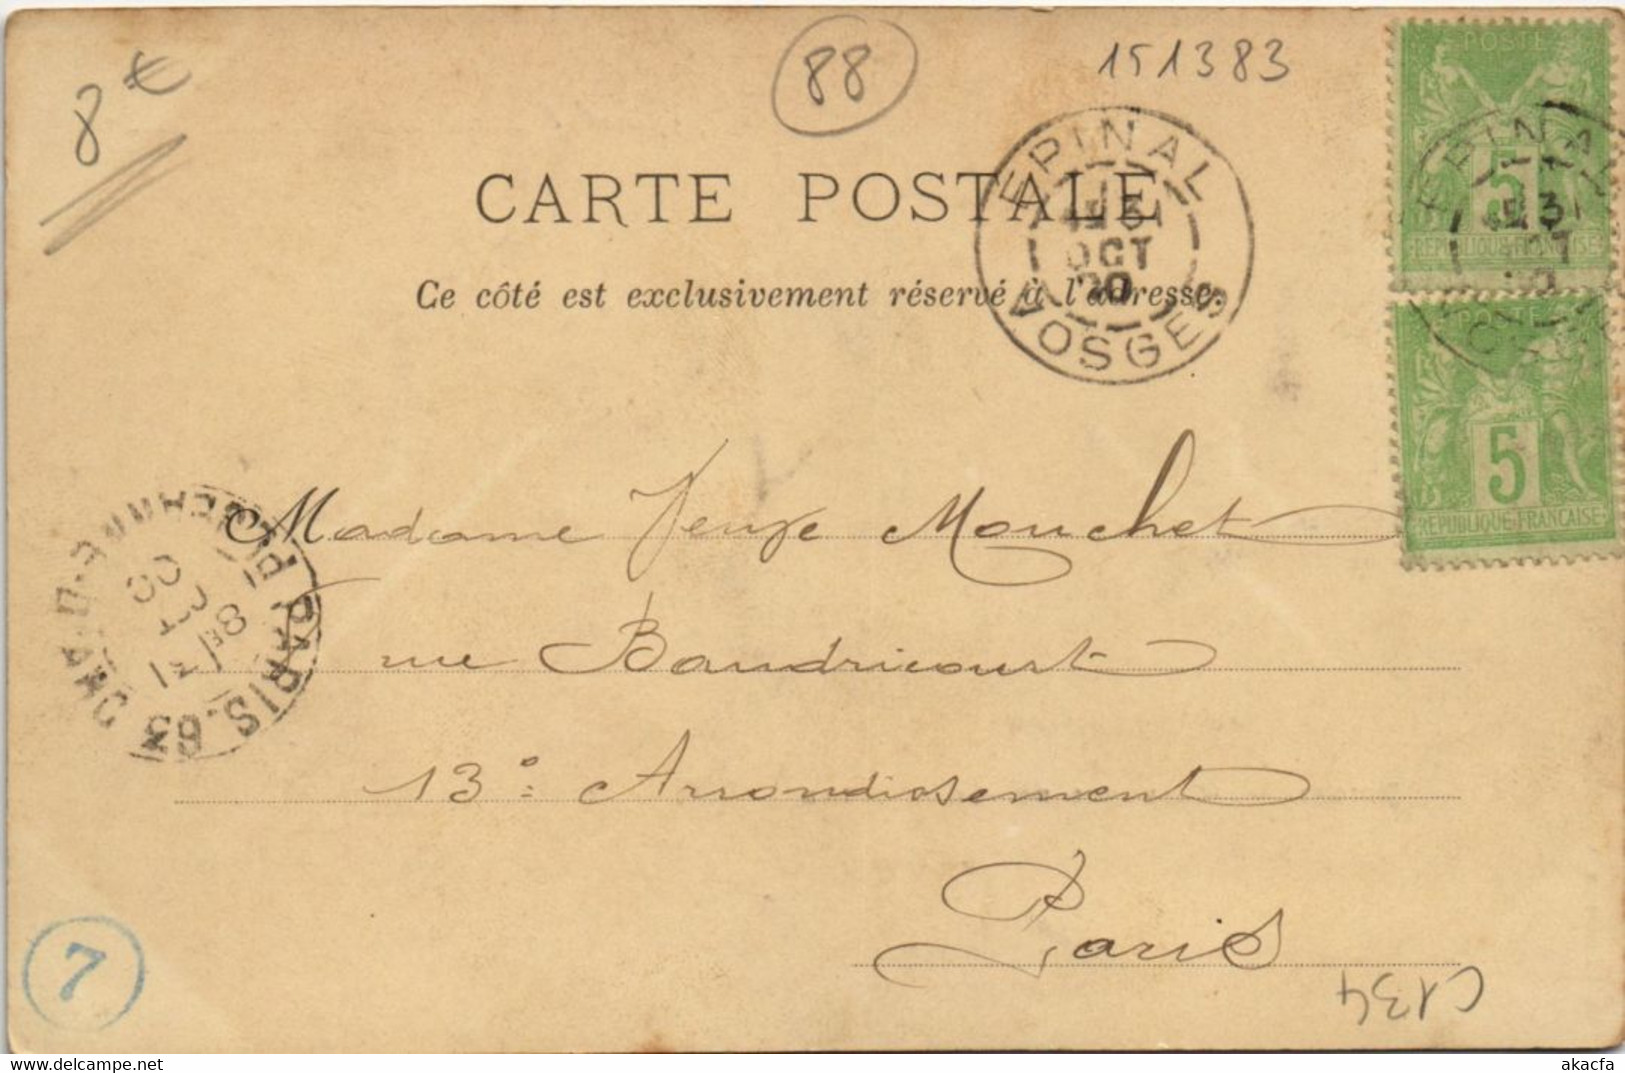 8€
88
151383
POSTE
5
REPUBLIQUE FRANÇAISE
POSTE
5
REPUBLIQUE FRANÇAISE
EPINAL
OCT
VOSGES
EPINAL
CARTE POSTALE
Ce côté est exclusivement réservé à l'adresse.
Madame Veuve Mouchet
rue Baudricourt
13e Arrondissement
Paris
PARIS. 63
8E
31
OCT
00
7
C134
akacfa